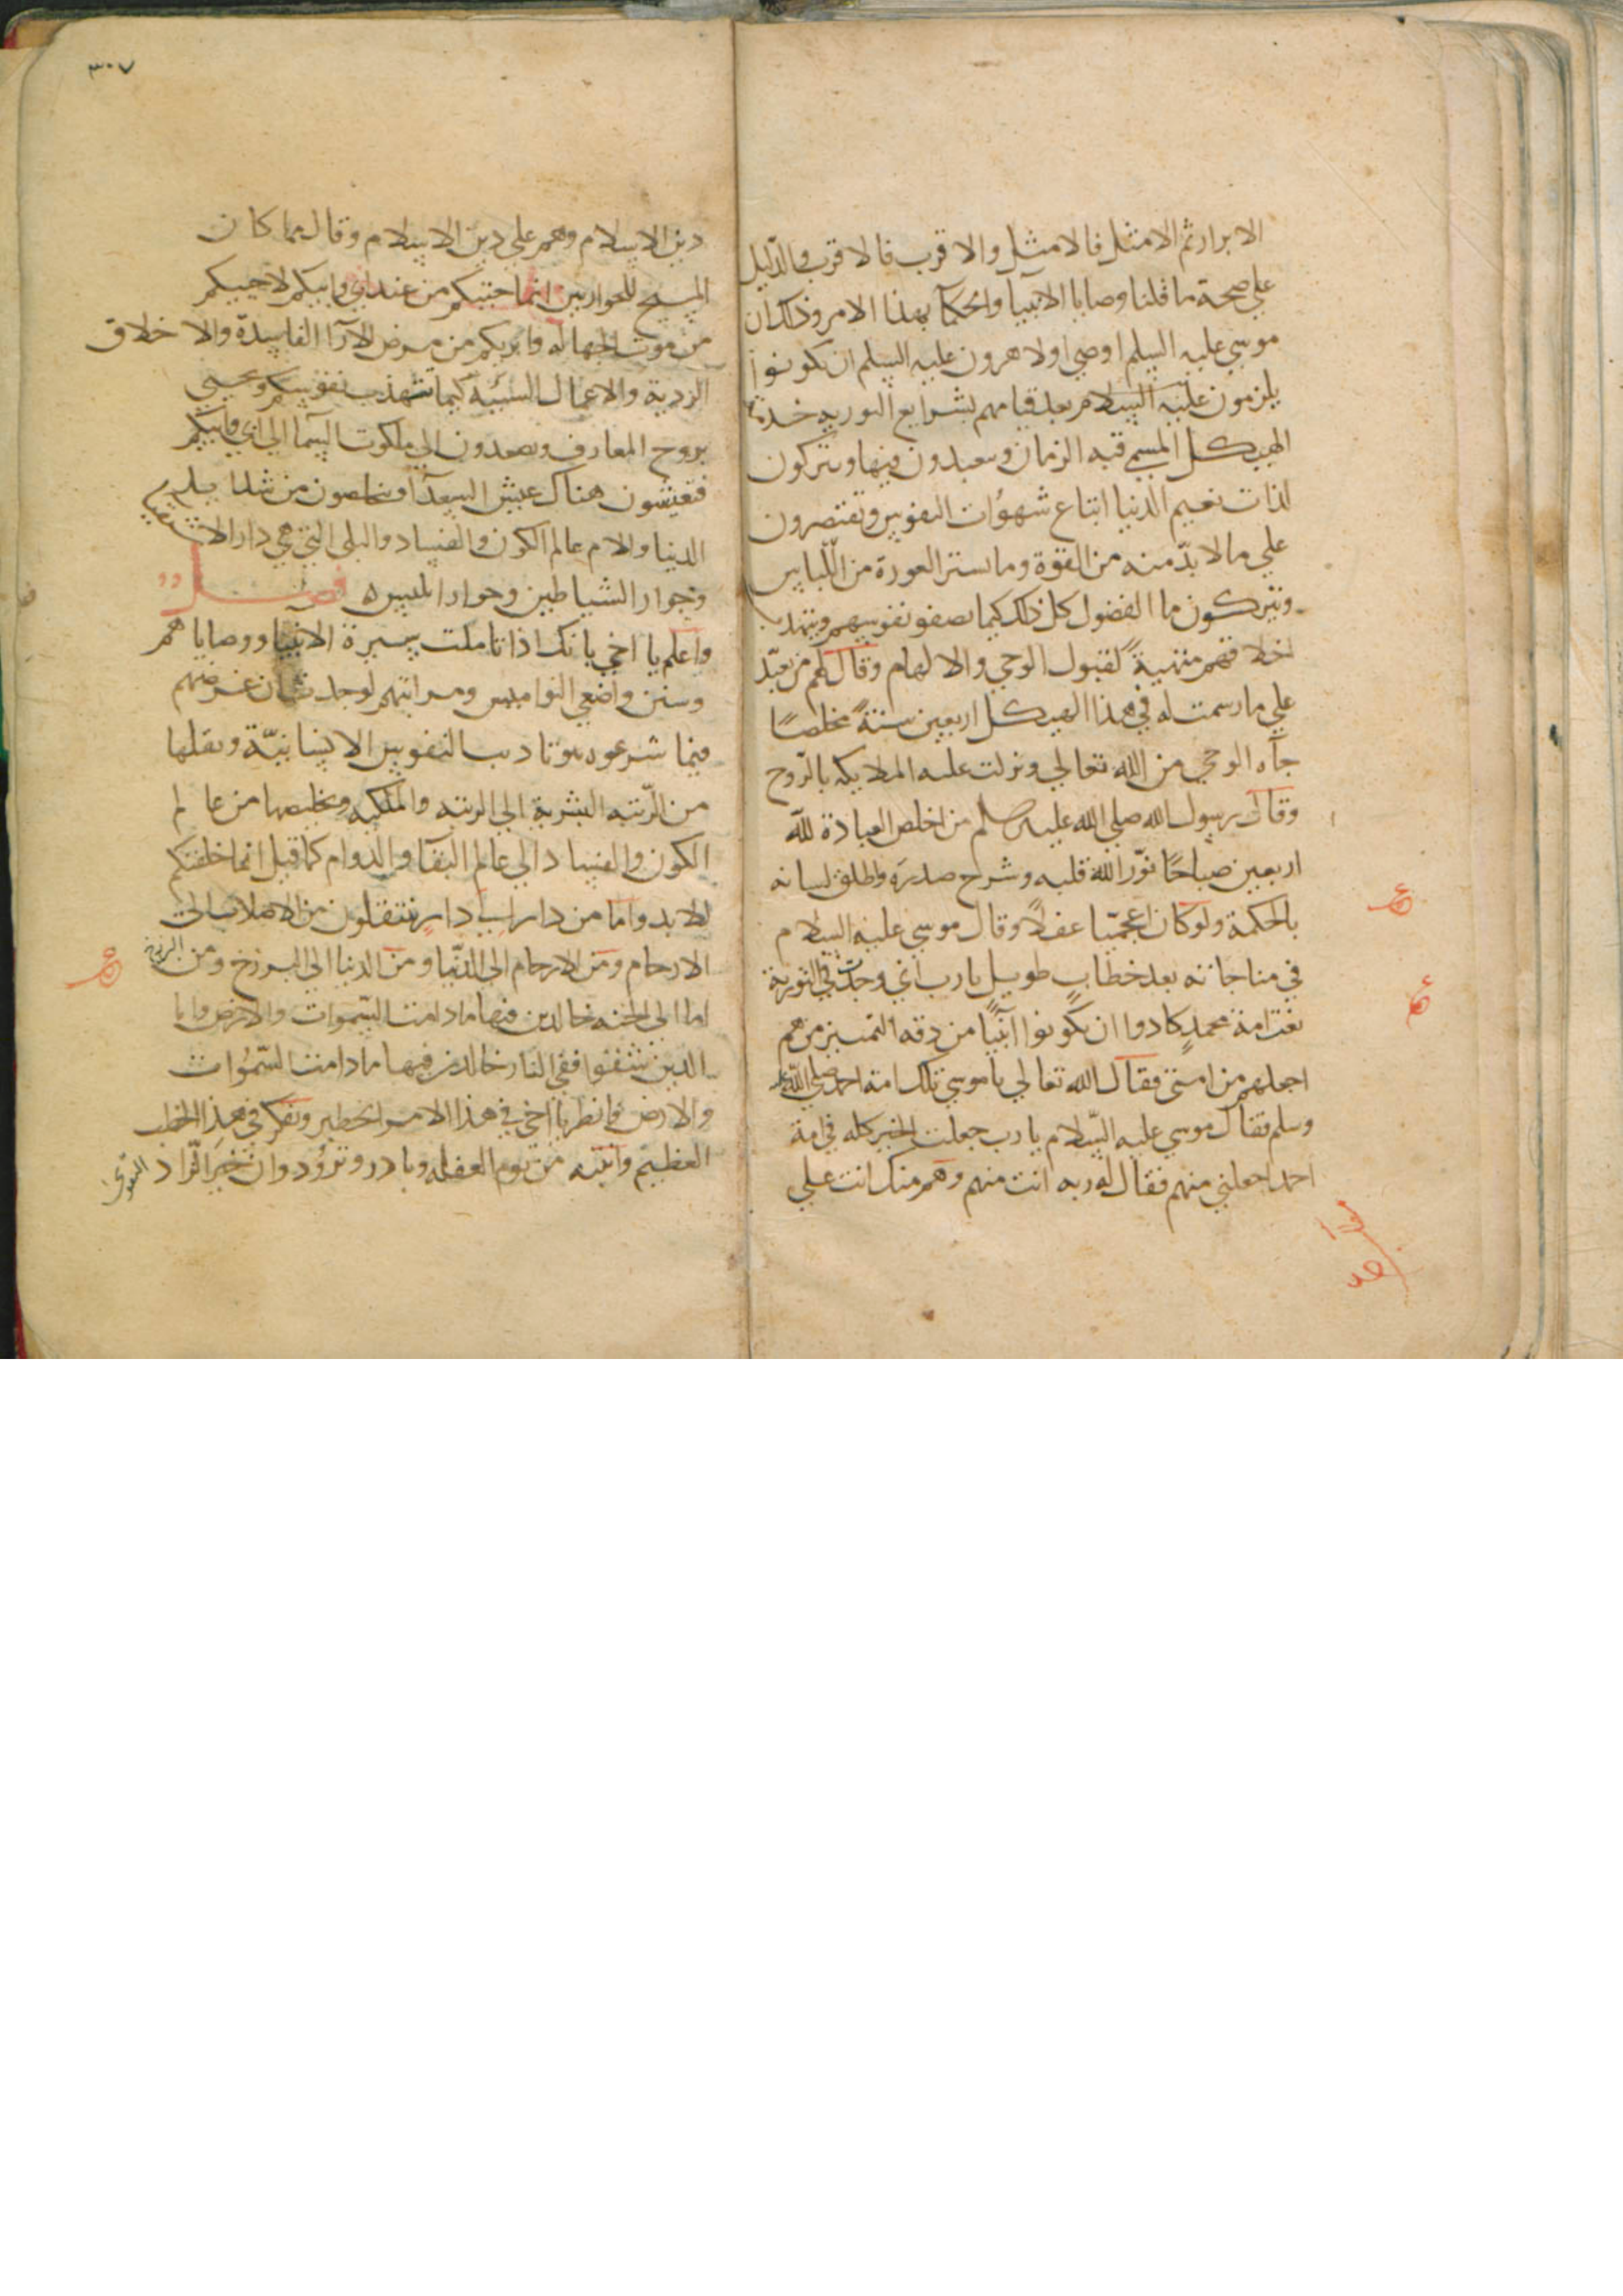 الابرار ثم الامثل فالامثل والاقرب فالاقرب والدليل
علي صحة ما قلنا وصايا الانبيا والحكما بهذا الامر وذلك ان
موسي عليه السلم اوصي اولا هرون عليه السلم ان يكونوا
يلزمون عليه السلام بعد قيامهم بشرايع التوريه خدمة
الهيكل المسمي قبه الزمان ويتعبدون فيها ويتركون
لذات نعيم الدنيا اتباع شهوات النفوس وتقتصرون
علي ما لا بد منه من القوة وما يستر العورة من اللباس
ويتركون ما الفضول كل ذلك كيما تصفو نفوسهم ويتهدب
اخلاقهم متهيية لقبول الوحي والالهام وقال لهم من تعبد
علي ما رسمت له في هذا الهيكل اربعين سنة مخلصا
جآه الوحي من الله تعالي ونزلت عليه الملايكه بالروح
وقال رسول الله صلي الله عليه وسلم من اخلص العبادة لله
اربعين صباحا نور الله قلبه وشرح صدره واطلق لسانه
بالحكمة ولو كان اعجميا غفلا وقال موسي عليه السلام
في مناجاته بعد خطاب طويل يا رب اني وجدت في التورية
نعت امة محمد كادوا ان يكونوا انبيا من دقه التمييز من هم
اجعلهم من امتي فقال الله تعالي يا موسي تلك امة احمد صلي الله عليه
وسلم فقال موسي عليه السلام يا رب جعلت الخير كله في امة
احمد اجعلني منهم فقال له ربه انت منهم وهم منك انت علي
٣٠٧
دين الاسلام وهم علي دين الاسلام وقال مما كان
المسيح للحواريين انما جيتكم من عند ابي وابيكم لاحييكم
من موت الجهالة وابريكم من مرض الآرا الفاسدة والاخلاق
الردية والاعمال السيئة كيما تتهذب نفوسكم وتحيي
بروح المعارف وتصعدون الي ملكوت السما الي ابي وابيكم
فتعيشون هناك عيش السعدآ وتخلصون من
الدنيا والام عالم الكون والفساد والبلي التي هي دار الاشقيا
وجوار الشياطين وجوار ابليس ه فصل
واعلم يا اخي بانك اذا تاملت سيرة الانبيا ووصاياهم
وسنن واضعي النواميس ومراتبهم لوجدت ان غرضهم
فيما شرعوه هو تاديب النفوس الانسانية ونقلها
من الرتبه البشرية الي الرتبه والملكيه وتخليصها من عالم
الكون والفساد الي عالم البقآ والدوام كما قيل انما خلقتكم
للابد وانما من دار الي دار تنتقلون من الاصلاب الي
الارحام ومن الارحام الي الدنيا ومن الدنيا الي البرزخ ومن البرزخ
اما الي الجنه خالدين فيها ما دامت السموات والارض واما
الذين شقوا ففي النار خالدين فيها ما دامت السموات
والارض فانظر يا اخي في هذا الامر الخطير وتفكر في هذا الخطب
العظيم وانتبه من نوم الغفله وبادر وتزود وان خير الزاد التقوي